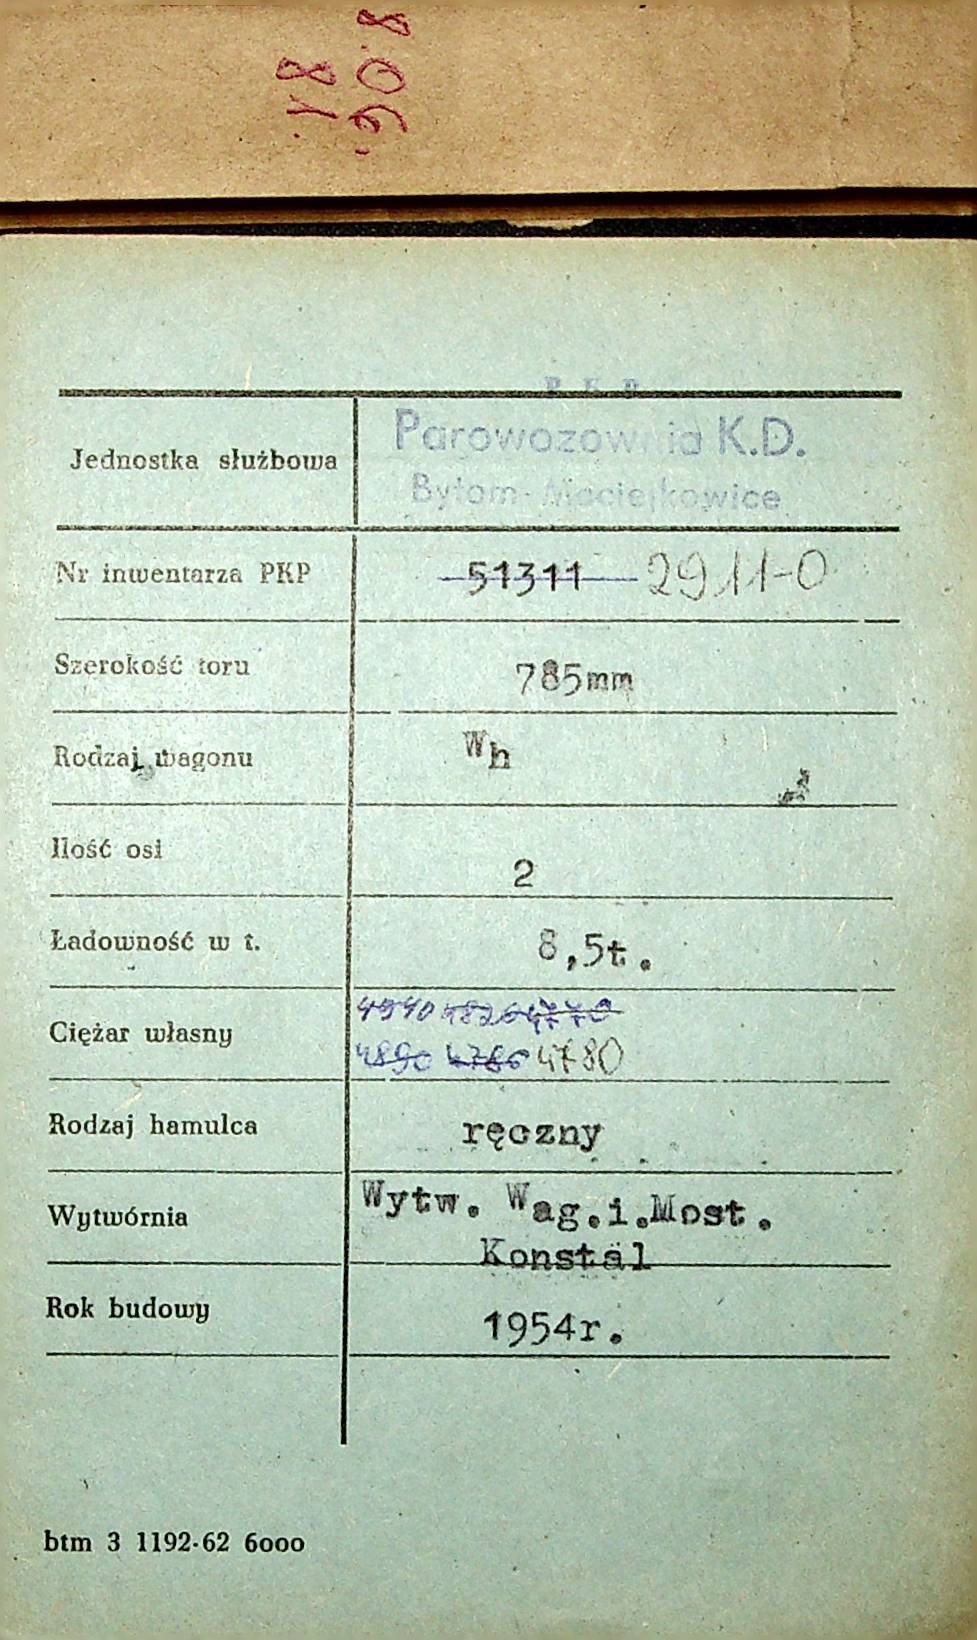 P K P
Jednostka służbowa Parowozownia K.D.
Bytom-Maciejkowice
Nr inwentarza PKP 51311 2911-0
Szerokość toru 785mm
Rodzaj wagonu Wh
Ilość osi 2
Ładowność w t. 8,5t.
4940 4826 4770
Ciężar własny 4890 4786 4780
Rodzaj hamulca ręczny
Wytwórnia Wytw. Wag.i.Most.
Konstal
Rok budowy 1954r.
btm 3 1192-62 6000